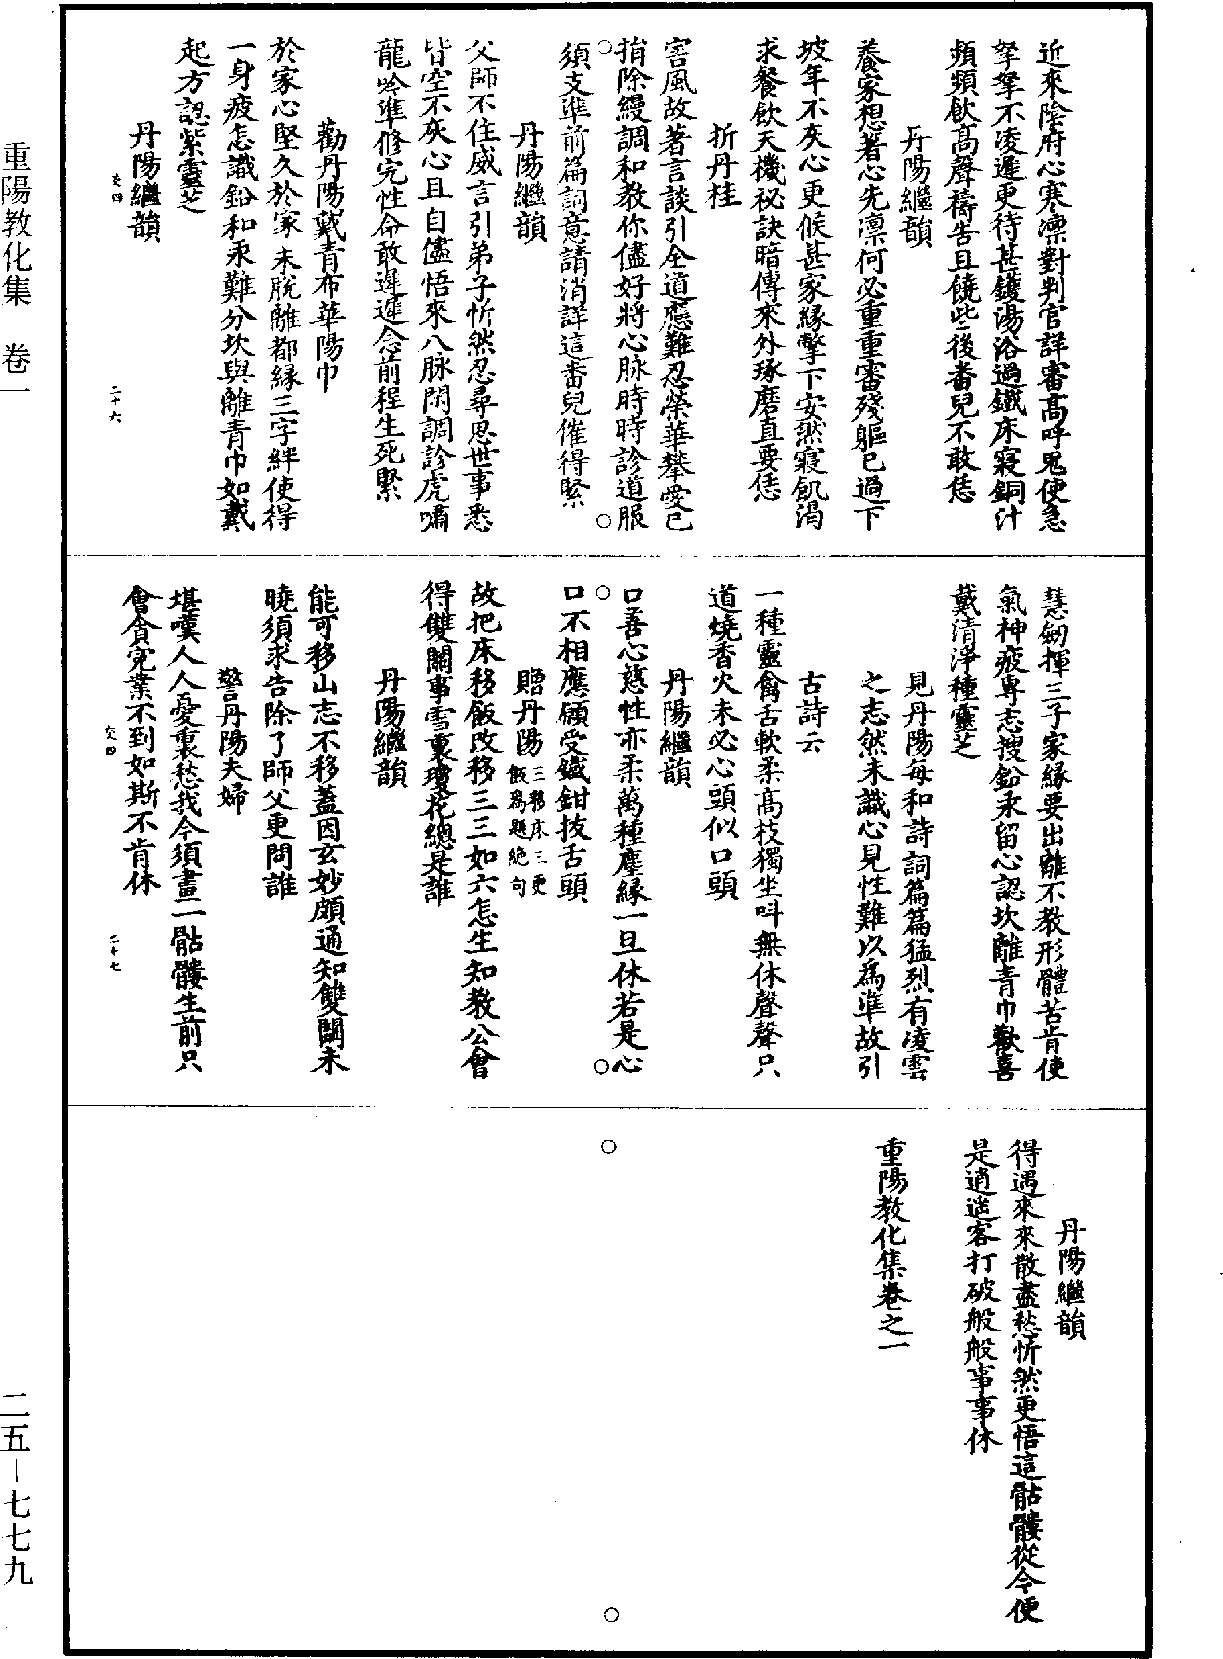 近來陰府心寒凜對判官詳審高呼鬼使急
拏拏不凌遲更待甚鑊湯浴過鐵床寢銅汁
頻頻飲高聲禱告且饒些後番兒不敢恁
丹陽繼韻
養家想著心先凛何必重重審殘軀已過下
坡年不灰心更候甚家緣撆下安然寢飢渴
求餐飲天機祕訣暗傳來外琢磨直要恁
折丹桂
害風故著言談引全道應難忍榮華攀愛已
捎除縵調和教你儘好將心脉時時診道服
須支準前篇詞意請消詳這番兒催得緊
丹陽繼韻
父師不住威言引弟子忻然忍尋思世事悉
皆空不灰心且自儘悟來八脉閑調診虎嘯
龍吟準修完性命敢遲遲念前程生死緊
勸丹陽戴青布華陽巾
於家心堅久於家未脫離都緣三字絆使得
一身疲怎識鉛和汞難分坎與離青巾如戴
起方認紫靈芝
丹陽繼韻
交四
二十六
慧劒揮三子家緣要出離不教形體苦肯使
氣神疲專志搜鉛汞留心認坎離青巾歡喜
戴清淨種靈芝
見丹陽每和詩詞篇篇猛烈有凌雲
之志然未識心見性難以爲準故引
古詩云
一種靈禽舌軟柔高枝獨坐叫無休聲聲只
道燒香火未必心頭似口頭
丹陽繼韻
口善心慈性亦柔萬種塵緣一旦休若是心
口不相應願受鐵鉗拔舌頭
贈丹陽三移床三更飯爲題絕句
故把床移飯改移三三如六怎生知教公會
得雙關事雪裏瓊花總是誰
丹陽繼韻
能可移山志不移蓋因玄妙頗通知雙關未
曉須求告除了師父更問誰
警丹陽夫婦
堪嘆人人憂裏愁我今須畫一骷髏生前只
會貪冤業不到如斯不肯休
交四
二十七
丹陽繼韻
得遇來來散盡愁忻然更悟這骷髏從今便
是逍遥客打破般般事事休
重陽教化集卷之一
重陽教化集 卷一
二五－七七九